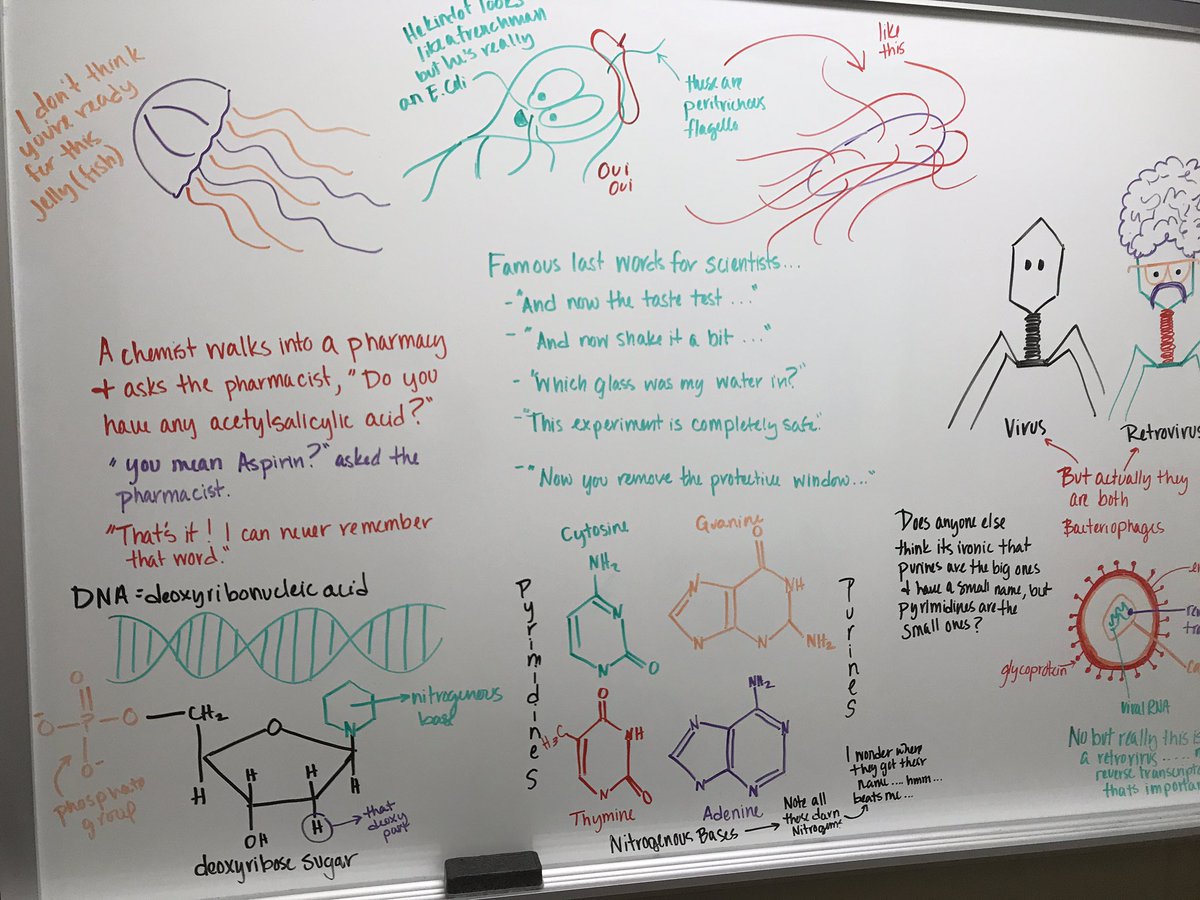 I don't think
you're ready
for this
Jelly(fish)
He kindof looks
like a frenchman
but he's really
an E.Coli
Oui
Oui
these are
peritrichous
flagella
like
this
Famous last words for scientists...
- "And now the taste test ..."
- "And now shake it a bit ..."
- "Which glass was my water in?"
- "This experiment is completely safe."
- "Now you remove the protective window..."
A chemist walks into a pharmacy
+ asks the pharmacist, "Do you
have any acetylsalicylic acid?"
"you mean Aspirin?" asked the
pharmacist.
"That's it! I can never remember
that word."
Virus
Retrovirus
But actually they
are both
Bacteriophages
DNA = deoxyribonucleic acid
nitrogenous
base
O
O-
P
O
O-
CH2
O
N
H
H
H
H
OH
H
phosphate
group
that
deoxy
part
deoxyribose sugar
Pyrimidines
Cytosine
NH2
N
N
O
Guanine
O
NH
N
N
N
NH2
Thymine
O
H3C
NH
N
O
Adenine
NH2
N
N
N
N
Purines
Nitrogenous Bases
Note all
those darn
Nitrogens
I wonder where
they got their
name .... hmm...
beats me...
Does anyone else
think its ironic that
purines are the big ones
+ have a small name, but
pyrimidines are the
small ones?
glycoprotein
viral RNA
No but really this is
a retrovirus .....
reverse
thats